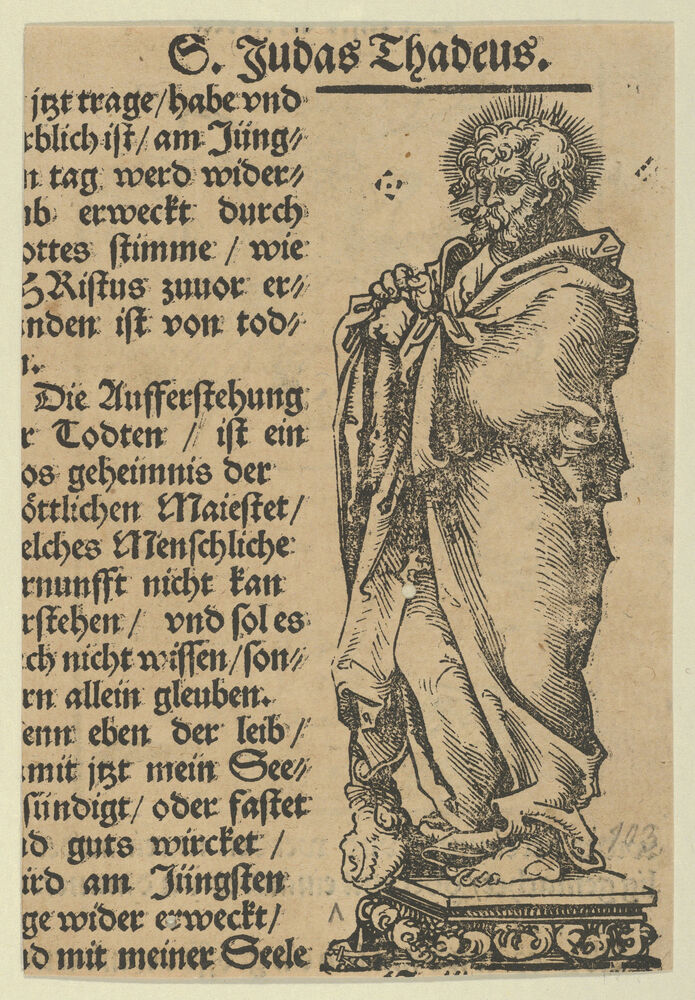 S. Judas Thadeus.
jtzt trage/habe vnd
rblich ist/ am Jüng⸗
n tag werd wider⸗
ub erweckt durch
ottes stimme / wie
HRistus zuuor er⸗
nden ist von tod⸗
n.
Die Aufferstehung
r Todten / ist ein
os geheimnis der
öttlichen Maiestet/
elches Menschliche
rnunfft nicht kan
rstehen/ vnd sol es
ch nicht wissen/son⸗
rn allein gleuben.
enn eben der leib /
mit jtzt mein See⸗
sündigt/ oder fastet
d guts wircket /
ird am Jüngsten
ge wider erweckt/
d mit meiner Seele
103